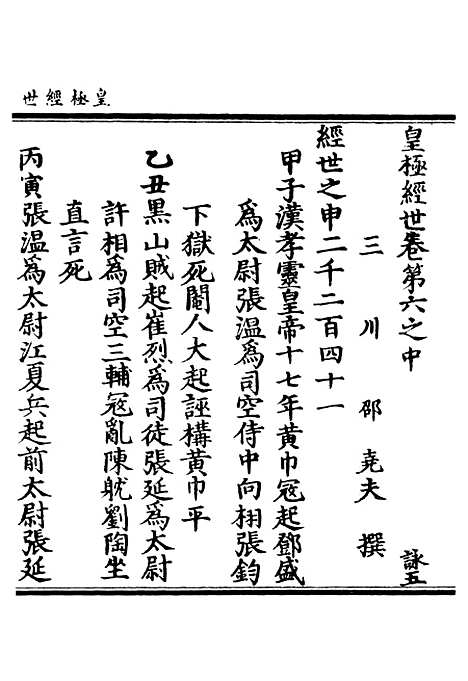 皇極經世
皇極經世卷第六之中 詠五
三川邵堯夫撰
經世之申二千二百四十一
甲子漢孝靈皇帝十七年黄巾冦起鄧盛
爲太尉張温爲司空侍中向栩張鈞
下獄死閹人大起誣構黄巾平
乙丑黒山賊起崔烈爲司徒張延爲太尉
許相爲司空三輔冦亂陳躭劉陶坐
直言死
丙寅張温爲太尉江夏兵起前太尉張延